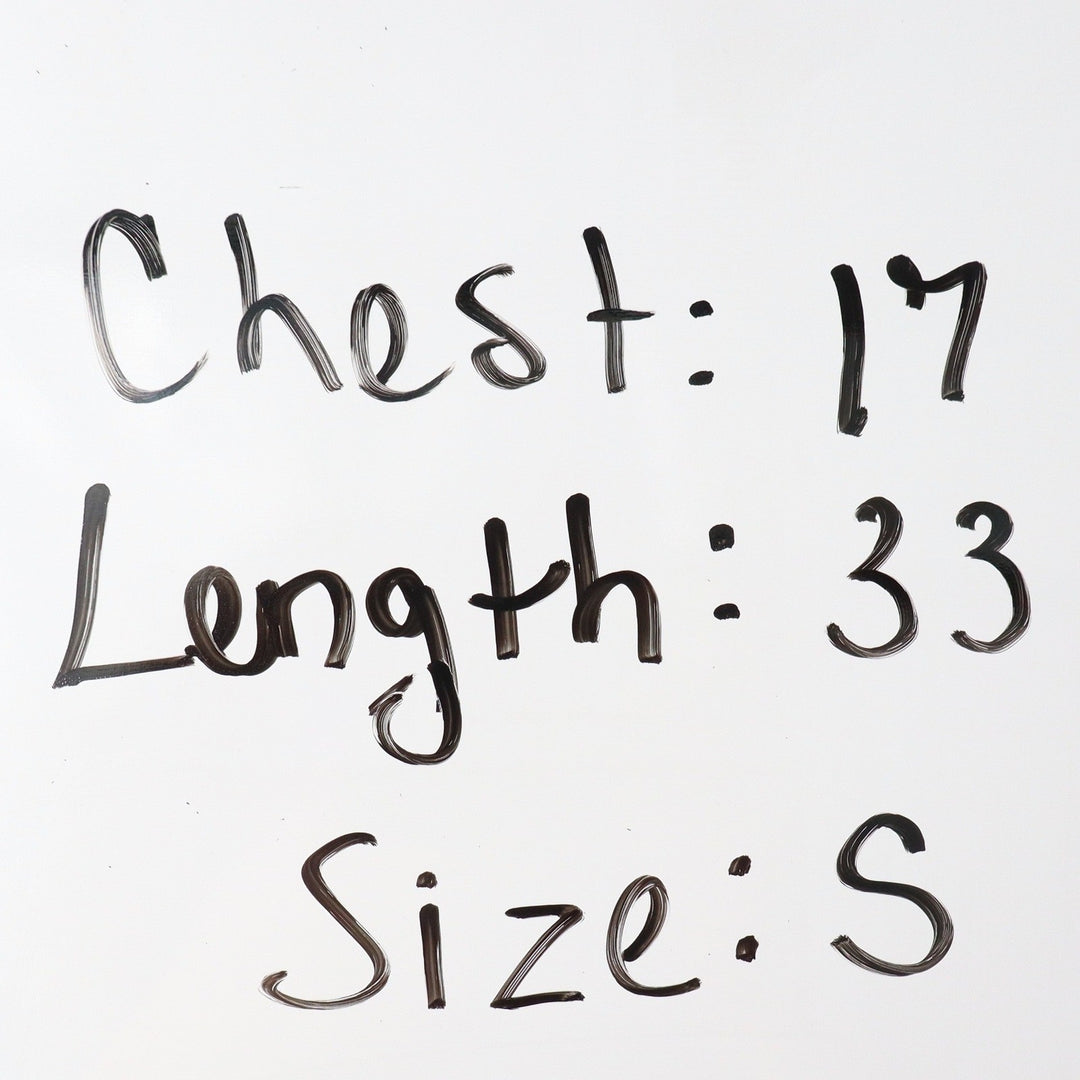 Chest: 17
Length: 33
Size: S